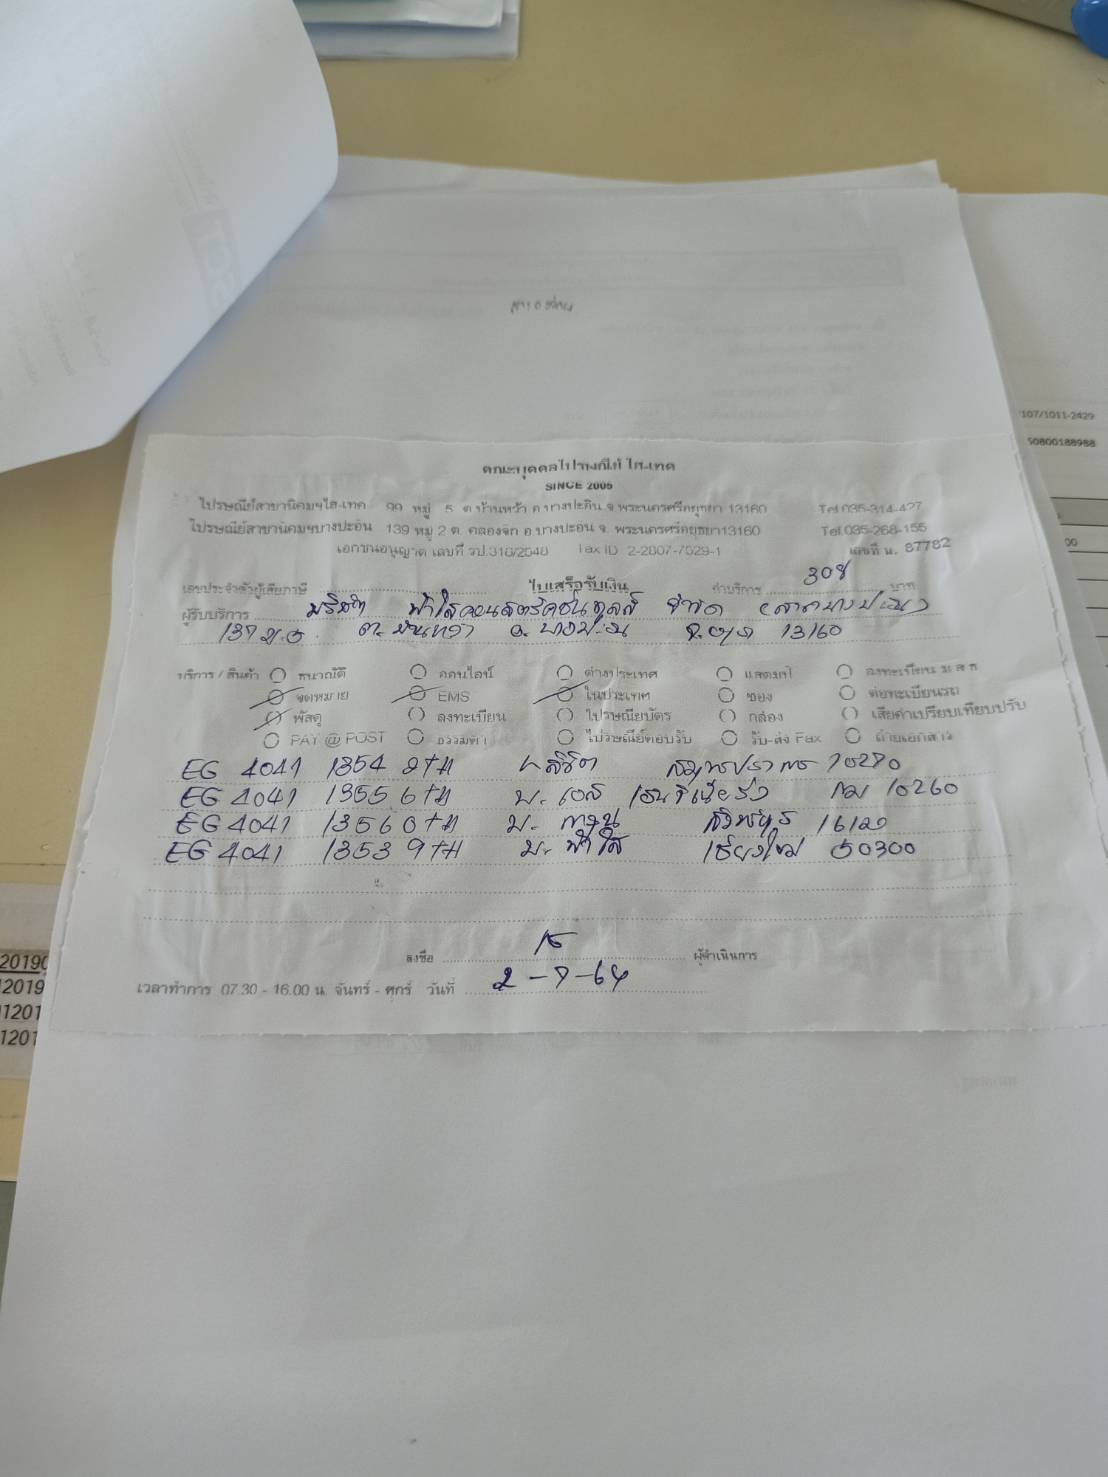 คณะบุคคลไปรษณีย์ ไฮเทค
SINCE 2005
ไปรษณีย์สาขานิคมฯไฮ-เทค 99 หมู่ 5 ต.บ้านหว้า อ.บางปะอิน จ.พระนครศรีอยุธยา 13160 Tel.035-314-427
ไปรษณีย์สาขานิคมฯบางปะอิน 139 หมู่ 2 ต. คลองจิก อ.บางปะอิน จ. พระนครศรีอยุธยา13160 Tel.035-268-155
เอกชนอนุญาต เลขที่ รป.318/2548 Tax ID 2-2007-7029-1 เลขที่ น. 87782
เลขประจำตัวผู้เสียภาษี ใบเสร็จรับเงิน ค่าบริการ 308 บาท
ผู้รับบริการ บริษัท ฟ้าใสคอนสตรัคชั่นทูลส์ จำกัด (สาขาบางปะอิน)
137 ม.5 ต. บ้านหว้า อ. บางปะอิน จ.อยุธยา 13160
บริการ / สินค้า ธนาณัติ ออนไลน์ ต่างประเทศ แสตมป์ ลงทะเบียน ม ส ท
จดหมาย EMS ในประเทศ ซอง ต่อทะเบียนรถ
พัสดุ ลงทะเบียน ไปรษณียบัตร กล่อง เสียค่าเปรียบเทียบปรับ
PAY @ POST ธรรมดา ไปรษณีย์ตอบรับ รับ-ส่ง Fax ถ่ายเอกสาร
EG 4041 1354 2TH สมุทรปราการ 10270
EG 4041 1355 6TH บ. เอส เอนจิเนียริ่ง กม 10260
EG 4041 1356 0TH บ. สิงห์บุรี
EG 4041 1353 9TH บ. ฟ้าใส เชียงใหม่ 50300
ลงชื่อ ผู้ดำเนินการ
เวลาทำการ 07.30 - 16.00 น. จันทร์ - ศุกร์ วันที่ 2-9-64
107/1011-2429
50800188988